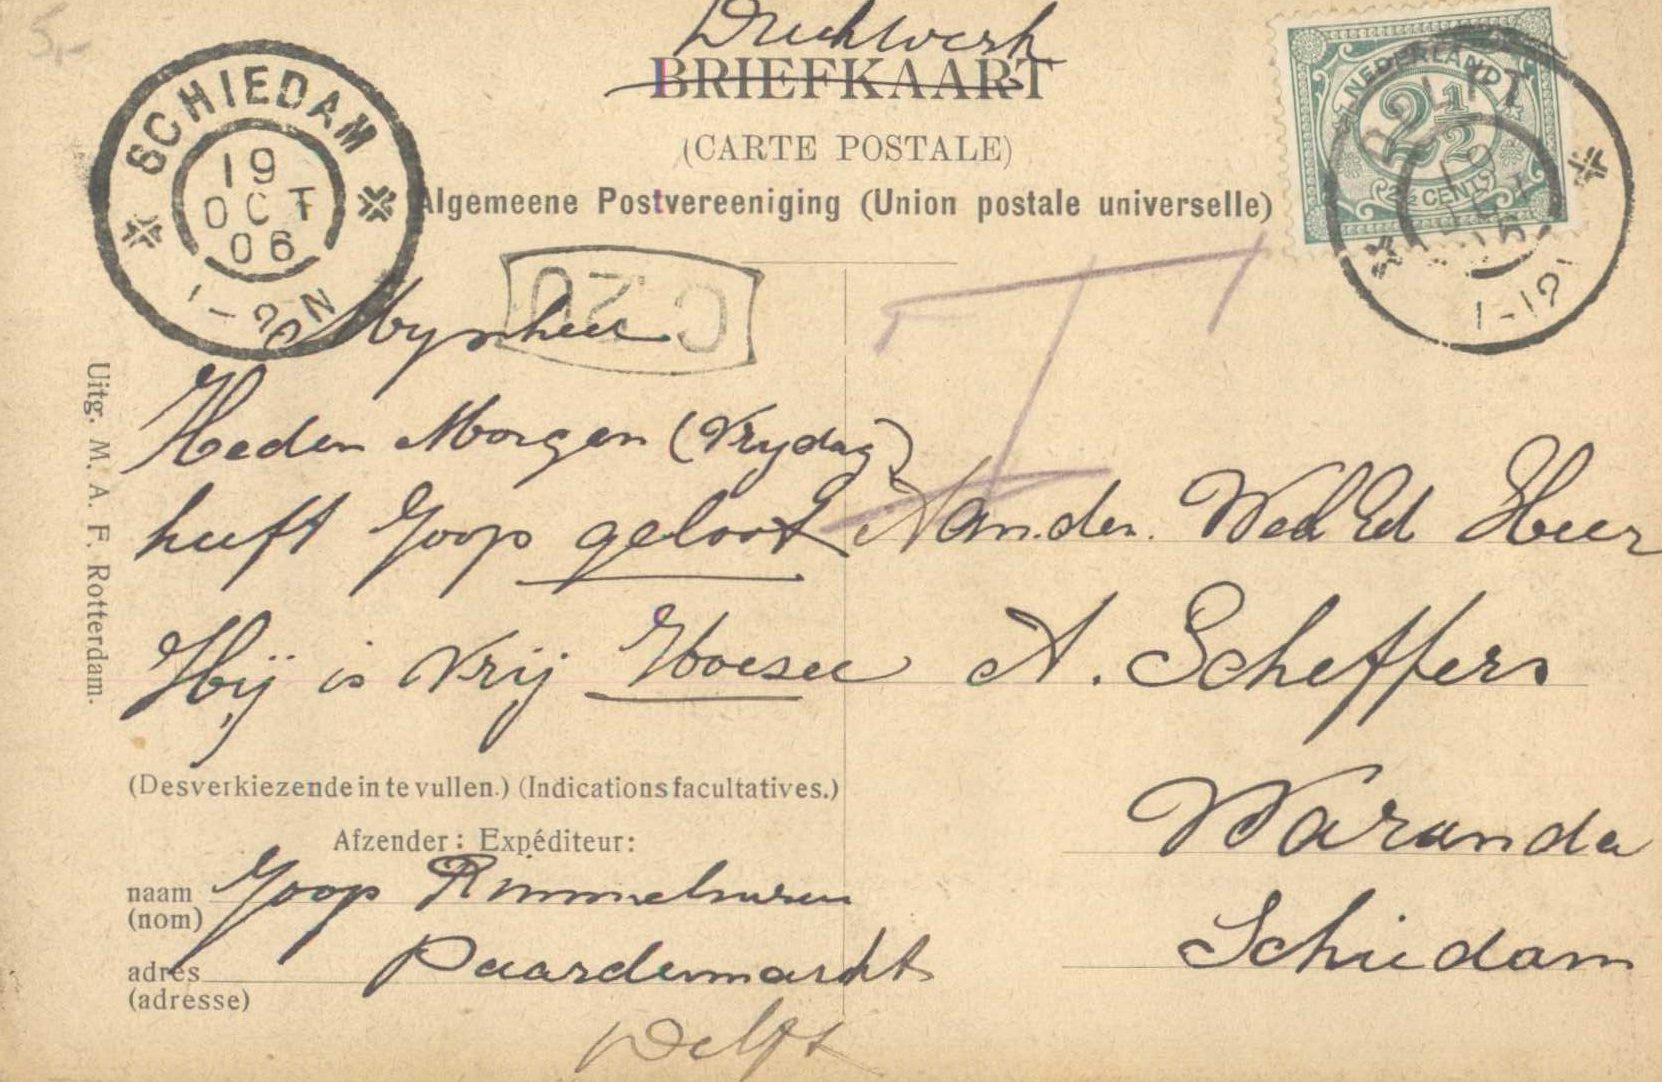 5,-
Drukwerk
BRIEFKAART
(CARTE POSTALE)
Algemeene Postvereeniging (Union postale universelle)
SCHIEDAM
19
OCT
06
1-2N
NEDERLAND
2½
2½ CENT
DELFT
1-12
T
Mynheer
Heden Morgen (Vrydag)
heeft Joop geloot
Hij is vrij Hoesee
Aan den. Wed Ed Heer
A. Scheffers
Waranda
Schiedam
(Desverkiezende in te vullen.) (Indications facultatives.)
Afzender: Expéditeur:
naam Joop
(nom)
adres Paardenmarkt
(adresse)
Delft
Uitg. M. A. F. Rotterdam.